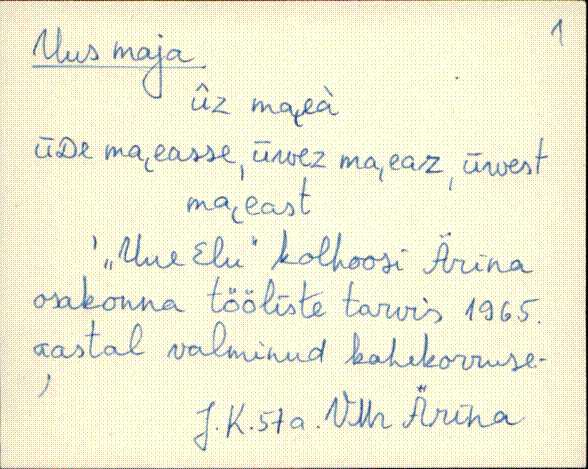 1
Uus maja
ûz ma̬eà
ūDe ma̬easse, ūwez ma̬eaz, ūwest
ma̬east
'„Uue Elu" kolhoosi Ärina
osakonna tööliste tarvis 1965.
aastal valminud kahekorruse-
'
J.K. 57a. VMr Ärina